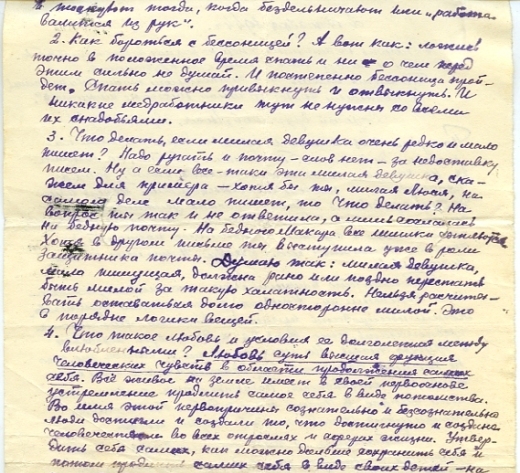 и тоскуют тогда, когда бездельничают или "работа
валится из рук".
2. Как бороться с бессоницей? А вот как: ложись
точно в положенное время спать и ни о чем перед
этим сильно не думай. И постепенно бессоница прой-
дет. Спать можно привыкнуть и отвыкнуть. И
никакие медработники тут не нужны со всеми
их снадобьями.
3. Что делать, если милая девушка очень редко и мало
пишет? Надо ругать и почту - слов нет - за недоставку
писем. Ну а если все-таки эти милая девушка, ска-
жем для примера - хотя бы ты, милая Люся, на
самом деле мало пишет, то что делать? На
вопрос ты так и не ответила, а лишь сослалась
на бедную почту. На бедного Макара все шишки валятся
Хотя в другом письме ты выступила уже в роли
защитника почты. Думаю так: милая девушка,
мало пишущая, должна рано или поздно перестать
быть милой за такую халатность. Нельзя расчиты-
вать оставаться долго односторонно милой. Это
в порядке логики вещей.
4. Что такое любовь и условия ее долголетия между
влюбленными? Любовь суть высшая функция
человеческих чувств в области продолжения самих
себя. Всё живое на земле имеет в своей первооснове
устремление продлить самое себя в виде потомства.
Во имя этой первопричины сознательно и безсознательно
люди достигли и создали то, что достигнуто и создано
человечеством во всех отраслях и сферах жизни. Утвер-
дить себя самих, как можно дольше сохранить себя и
потом самих себя в виде своих детей - на-